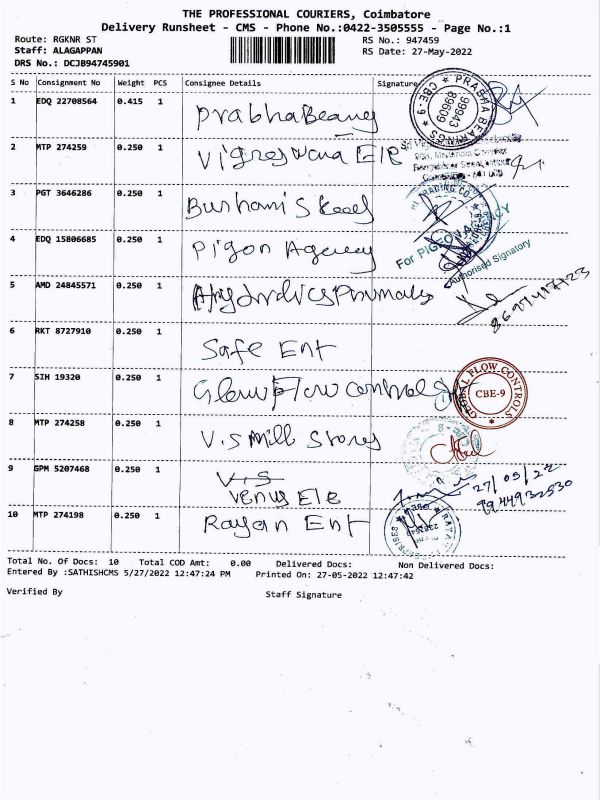 THE PROFESSIONAL COURIERS, Coimbatore
Delivery Runsheet - CMS - Phone No.:0422-3505555 - Page No.:1
Route: RGKNR ST RS No.: 947459
Staff: ALAGAPPAN RS Date: 27-May-2022
DRS No.: DCJB94745901
S No Consignment No Weight PCS Consignee Details Signature
1 EDQ 22708564 0.415 1 Prabha Bearings
PRABHA BEARINGS
CBE-9
99943
89609
2 MTP 274259 0.250 1 Vigneswara Ele
3 PGT 3646286 0.250 1
TRADING CO.
4 EDQ 15806685 0.250 1 Pigon Agency
For PIGEON AGENCY
Authorised Signatory
5 AMD 24845571 0.250 1
6 RKT 8727910 0.250 1 Safe Ent
7 SIH 19320 0.250 1 Flow control
GLOBAL FLOW CONTROLS
CBE-9
8 MTP 274258 0.250 1 V.S Mill Stores
9 GPM 5207468 0.250 1 V.S
Venus Ele
27/05/22
9944932530
10 MTP 274198 0.250 1 Rayan Ent
Total No. Of Docs: 10 Total COD Amt: 0.00 Delivered Docs: Non Delivered Docs:
Entered By :SATHISHCMS 5/27/2022 12:47:24 PM Printed On: 27-05-2022 12:47:42
Verified By Staff Signature